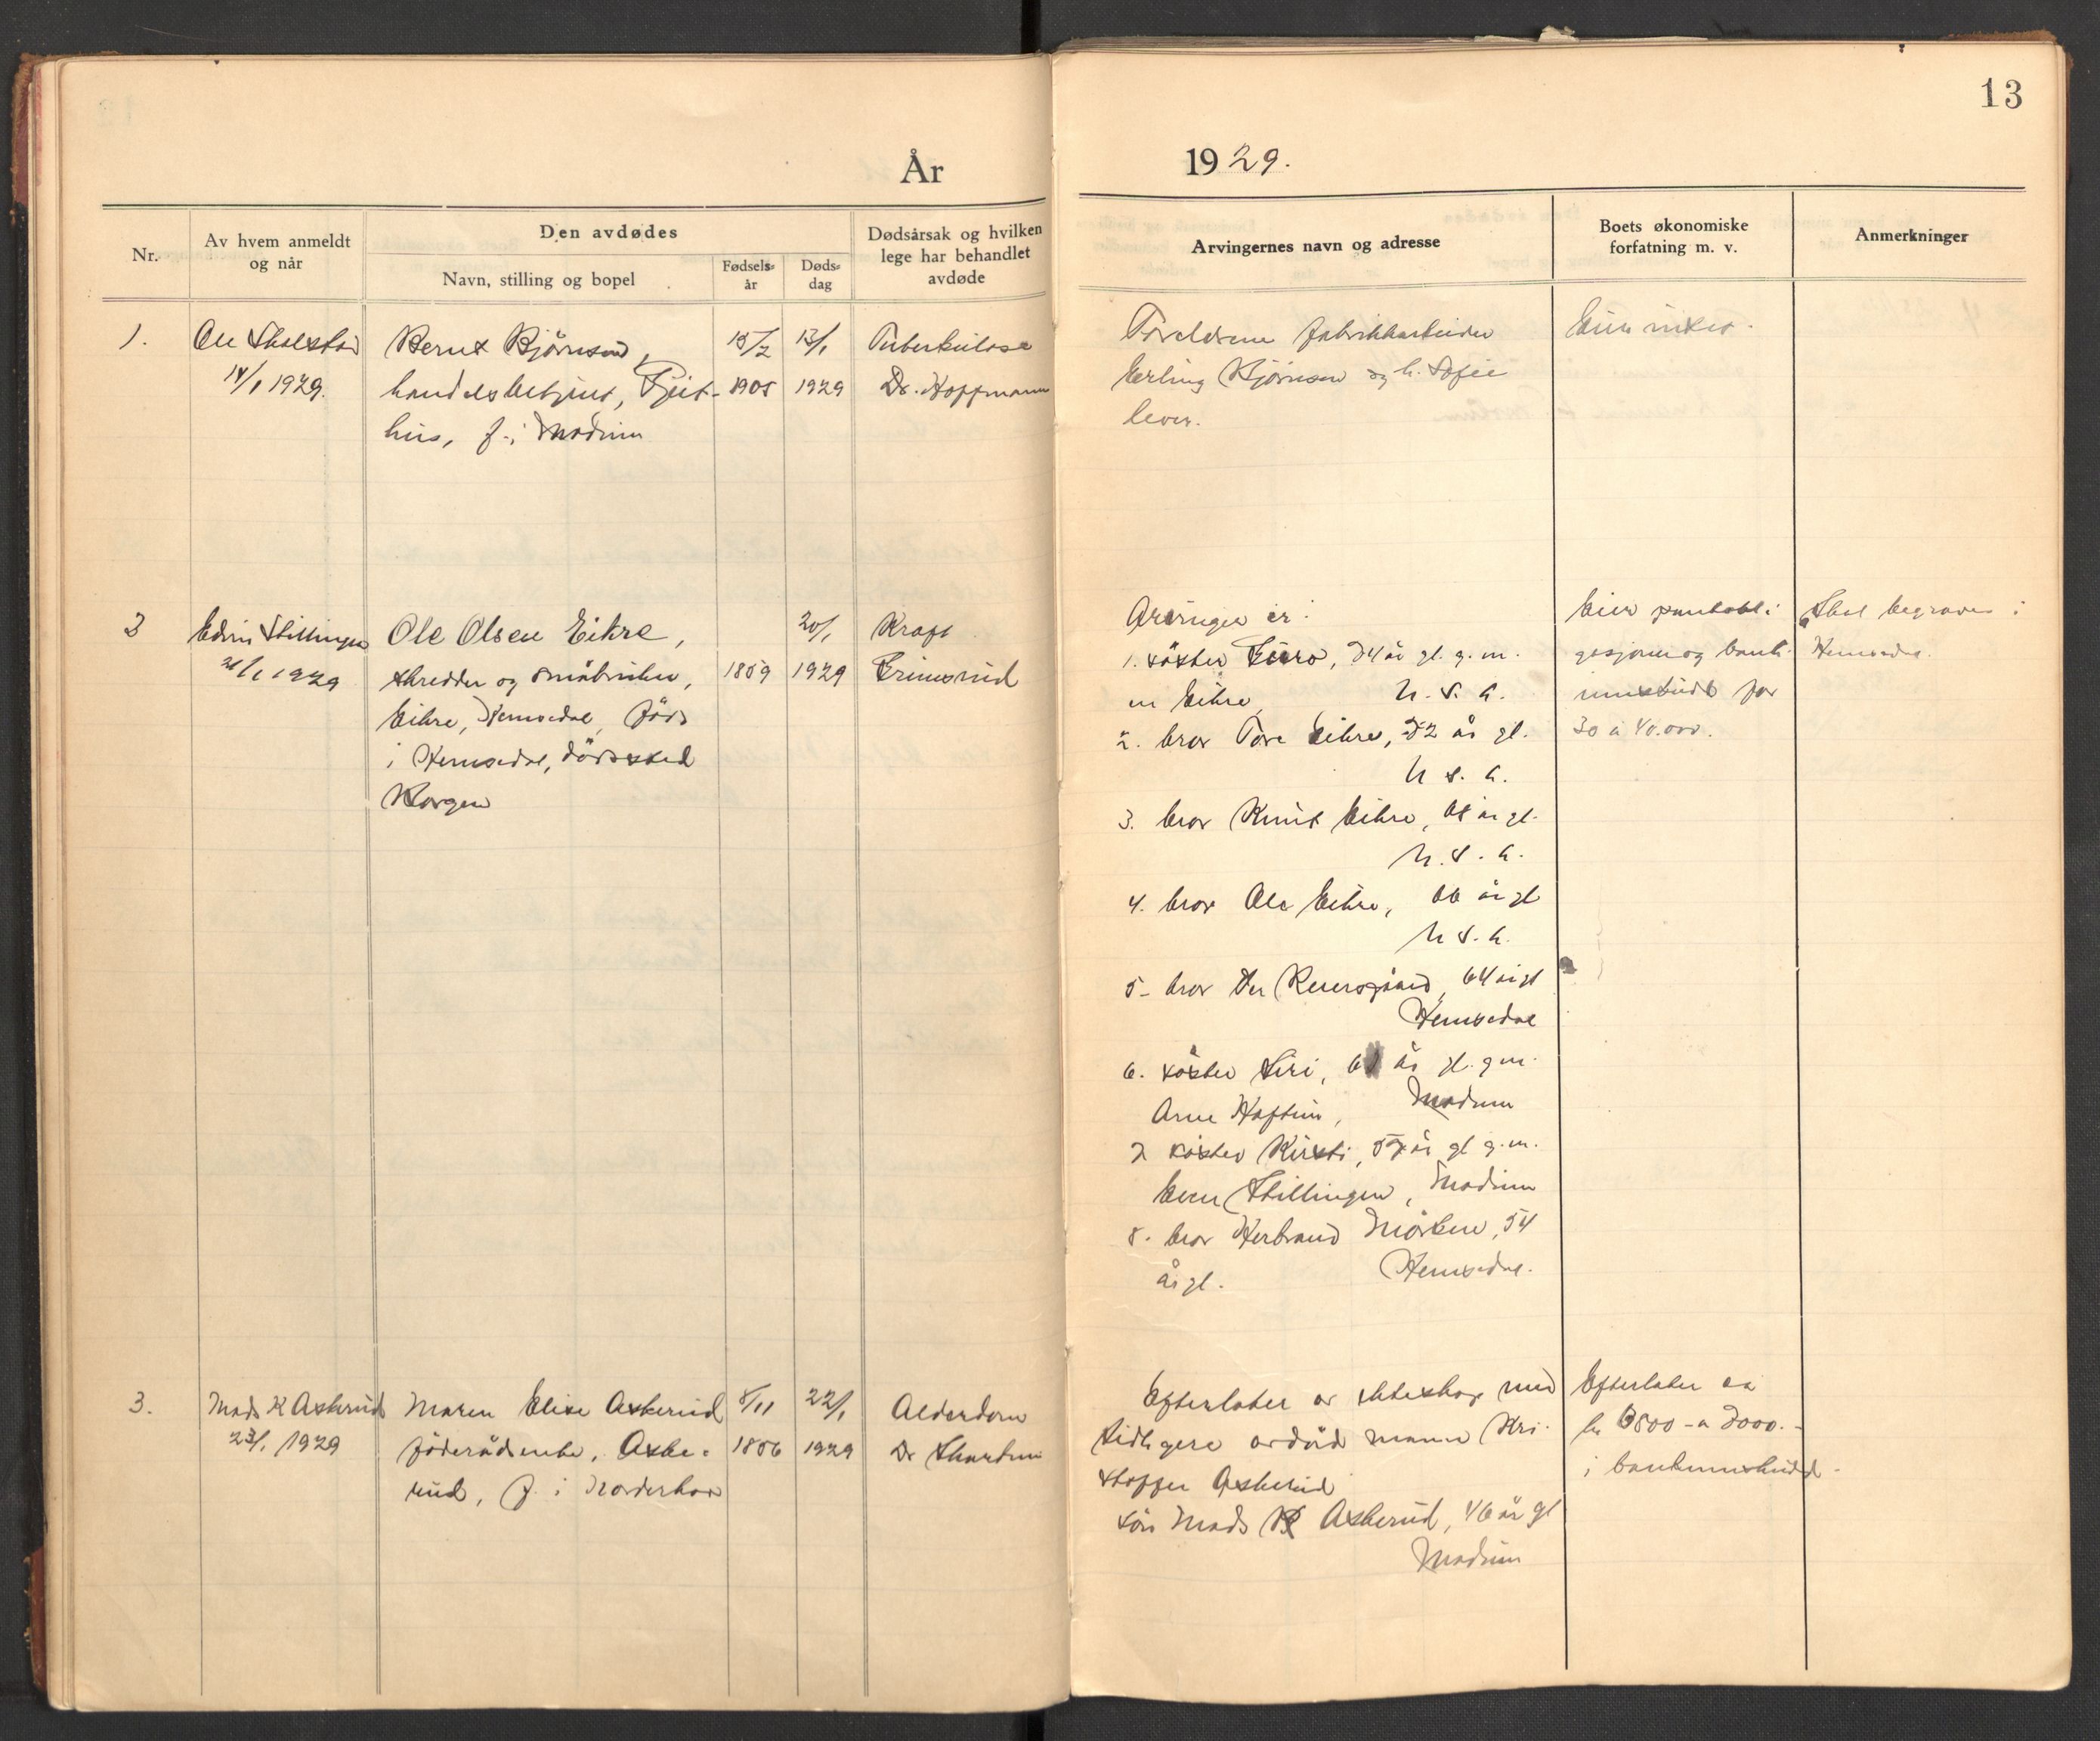 13
År
1929.
Nr.
Av hvem anmeldt
og når
Den avdødes
Navn, stilling og bopel
Fødsels-
år
Døds-
dag
Dødsårsak og hvilken
lege har behandlet
avdøde
Arvingernes navn og adresse
Boets økonomiske
forfatning m. v.
Anmerkninger
1.
Ole Skalstad
14/1 1929.
Bernt Björnsen,
handelsbetjent, Gjeit-
hus, f. i Modum
15/2
1905
13/1
1929
Tuberkulose
Dr. Hoffmann
Foreldrene fabrikkarbeider
Erling Björnsen og h. Sofie
lever.
Eier intet.
2
Edvin Skillingen
21/1 1929
Ole Olsen Eikre,
skredder og småbruker,
Eikre, Hemsedal, född
i Hemsedal, dödssted
Korgen
1859
20/1
1929
Kreft
Grimsrud
Arvinger er:
1. söster Guro, 74 år gl. g. m.
en Eikre, U. S. A.
2. bror Tore Eikre, 72 år gl.
U. S. A.
3. bror Knut Eikre, 68 år gl.
U. S. A.
4. bror Ole Eikre, 66 år gl
U. S. A.
5. bror Per Reiersgård, 64 år gl
Hemsedal
6. söster Siri, år gl. g. m.
Arne Haftun, Modum
7 söster Kirsti, 57 år gl g. m.
Even Skillingen, Modum
8. bror Herbrand Mörken, 54
år gl. Hemsedal.
Eier pantobli-
gasjoner og bank-
innskudd for
30 à 40.000.
Skal begraves i
Hemsedal.
3.
Mads K Askerud
23/1 1929
Maren Elise Askerud
föderådsenke, Aske-
rud, f. i Norderhov
8/11
1856
22/1
1929
Alderdom
Dr
Efterlater av ekteskap med
tidligere avdöd mann Kri-
stoffer Askerud
sön Mads K Askerud, 46 år gl
Modum
Efterlater ca
kr 6500 - a 7000.-
i bankinnskudd.